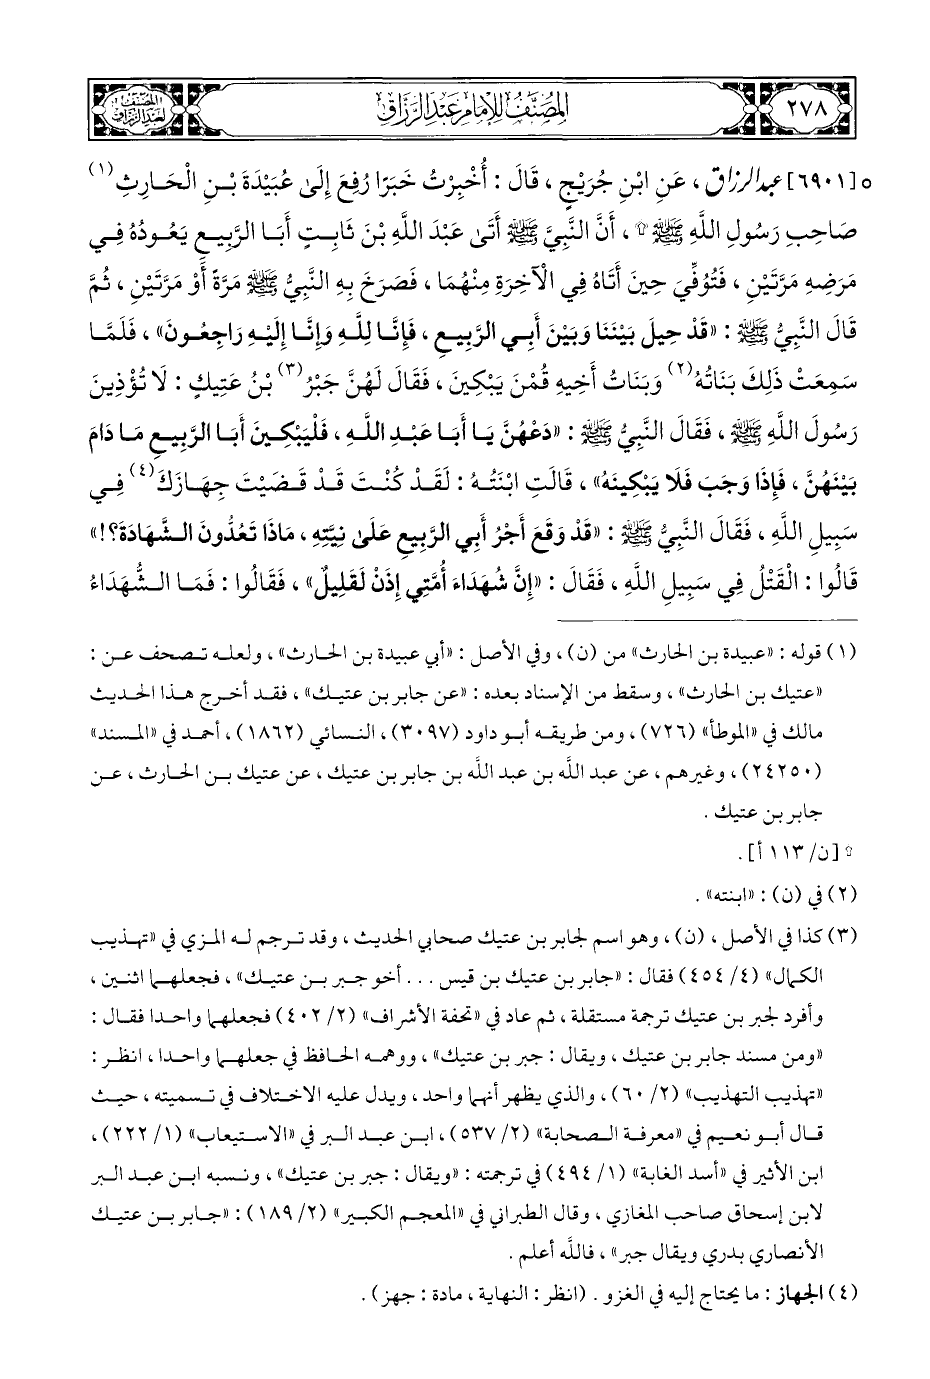 ٢٧٨
المصنف للإمام عبد الرزاق
المصنف لعبد الرزاق
٥ [٦٩٠١] عبد الرزاق ، عَنِ ابْنِ جُرَيْجٍ ، قَالَ : أُخْبِرْتُ خَبَرًا رُفِعَ إِلَىٰ عُبَيْدَةَ بْنِ الْحَارِثِ (١)
صَاحِبِ رَسُولِ اللَّهِ ﷺ ۩ ، أَنَّ النَّبِيَّ ﷺ أَتَىٰ عَبْدَ اللَّهِ بْنَ ثَابِتٍ أَبَا الرَّبِيعِ يَعُودُهُ فِي
مَرَضِهِ مَرَّتَيْنِ ، فَتُوُفِّيَ حِينَ أَتَاهُ فِي الْآخِرَةِ مِنْهُمَا ، فَصَرَخَ بِهِ النَّبِيُّ ﷺ مَرَّةً أَوْ مَرَّتَيْنِ ، ثُمَّ
قَالَ النَّبِيُّ ﷺ : «قَدْ حِيلَ بَيْنَنَا وَبَيْنَ أَبِي الرَّبِيعِ ، فَإِنَّا لِلَّهِ وَإِنَّا إِلَيْهِ رَاجِعُونَ» ، فَلَمَّا
سَمِعَتْ ذَلِكَ بَنَاتُهُ (٢) وَبَنَاتُ أَخِيهِ قُمْنَ يَبْكِينَ ، فَقَالَ لَهُنَّ جَبْرُ (٣) بْنُ عَتِيكٍ : لَا تُؤْذِينَ
رَسُولَ اللَّهِ ﷺ ، فَقَالَ النَّبِيُّ ﷺ : «دَعْهُنَّ يَا أَبَا عَبْدِ اللَّهِ ، فَلْيَبْكِينَ أَبَا الرَّبِيعِ مَا دَامَ
بَيْنَهُنَّ ، فَإِذَا وَجَبَ فَلَا يَبْكِينَهُ» ، قَالَتِ ابْنَتُهُ : لَقَدْ كُنْتَ قَدْ قَضَيْتَ جِهَازَكَ (٤) فِي
سَبِيلِ اللَّهِ ، فَقَالَ النَّبِيُّ ﷺ : «قَدْ وَقَعَ أَجْرُ أَبِي الرَّبِيعِ عَلَىٰ نِيَّتِهِ ، مَاذَا تَعُدُّونَ الشَّهَادَةَ؟!»
قَالُوا : الْقَتْلُ فِي سَبِيلِ اللَّهِ ، فَقَالَ : «إِنَّ شُهَدَاءَ أُمَّتِي إِذَنْ لَقَلِيلٌ» ، فَقَالُوا : فَمَا الشُّهَدَاءُ
(١) قوله : «عبيدة بن الحارث» من (ن) ، وفي الأصل : «أبي عبيدة بن الحارث» ، ولعله تصحف عن :
«عتيك بن الحارث» ، وسقط من الإسناد بعده : «عن جابر بن عتيك» ، فقد أخرج هذا الحديث
مالك في «الموطأ» (٧٢٦) ، ومن طريقه أبو داود (٣٠٩٧) ، النسائي (١٨٦٢) ، أحمد في «المسند»
(٢٤٢٥٠) ، وغيرهم ، عن عبد الله بن عبد الله بن جابر بن عتيك ، عن عتيك بن الحارث ، عن
جابر بن عتيك .
۩ [ن/ ١١٣ أ] .
(٢) في (ن) : «ابنته» .
(٣) كذا في الأصل ، (ن) ، وهو اسم لجابر بن عتيك صحابي الحديث ، وقد ترجم له المزي في «تهذيب
الكمال» (٤/ ٤٥٤) فقال : «جابر بن عتيك بن قيس . . . أخو جبر بن عتيك» ، فجعلهما اثنين ،
وأفرد لجبر بن عتيك ترجمة مستقلة ، ثم عاد في «تحفة الأشراف» (٢/ ٤٠٢) فجعلهما واحدا فقال :
«ومن مسند جابر بن عتيك ، ويقال : جبر بن عتيك» ، ووهمه الحافظ في جعلهما واحدا ، انظر :
«تهذيب التهذيب» (٢/ ٦٠) ، والذي يظهر أنهما واحد ، ويدل عليه الاختلاف في تسميته ، حيث
قال أبو نعيم في «معرفة الصحابة» (٢/ ٥٣٧) ، ابن عبد البر في «الاستيعاب» (١/ ٢٢٢) ،
ابن الأثير في «أسد الغابة» (١/ ٤٩٤) في ترجمته : «ويقال : جبر بن عتيك» ، ونسبه ابن عبد البر
لابن إسحاق صاحب المغازي ، وقال الطبراني في «المعجم الكبير» (٢/ ١٨٩) : «جابر بن عتيك
الأنصاري بدري ويقال جبر» ، فالله أعلم .
(٤) الجهاز : ما يحتاج إليه في الغزو . (انظر : النهاية ، مادة : جهز) .